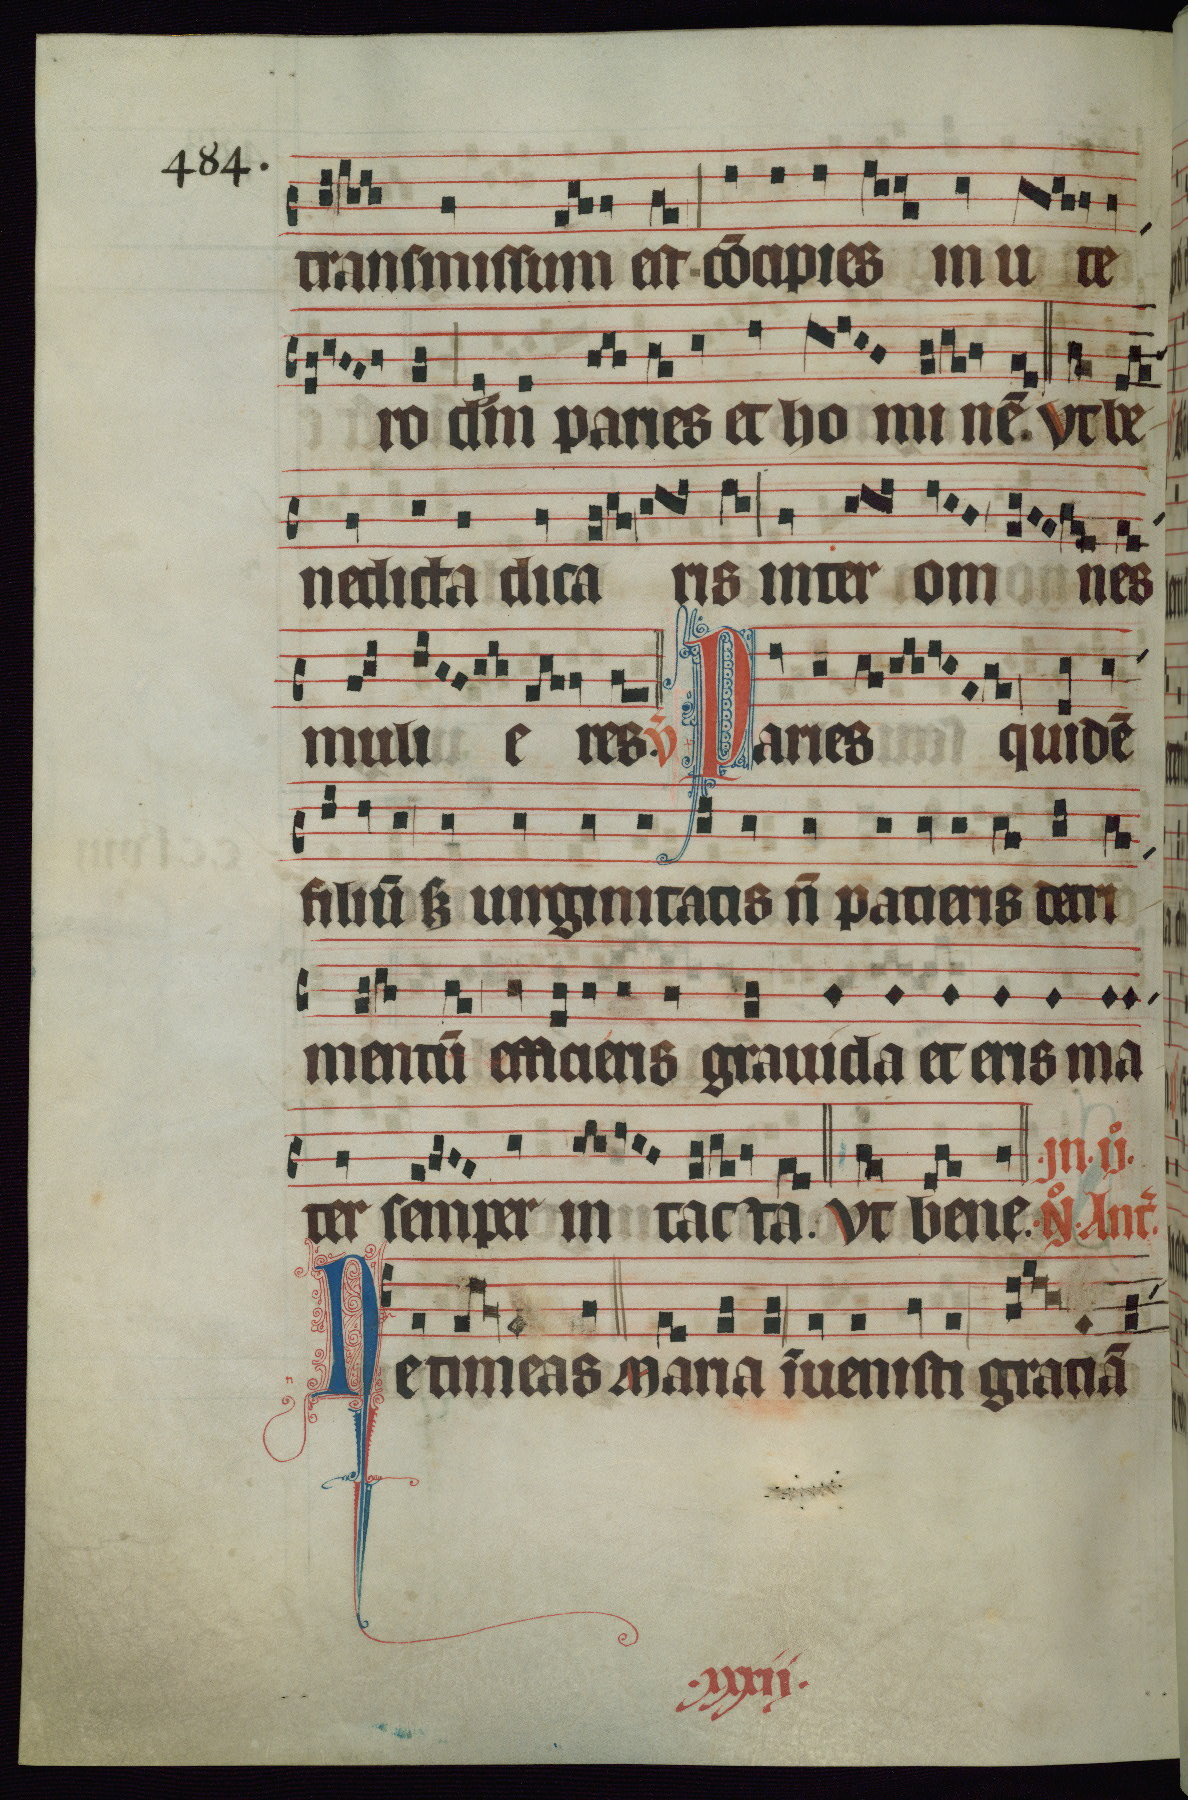 484.
transmissum est cōcipies in u te
ro dm̄ paries et ho mi nē. Vt be
nedicta dica ris inter om nes
muli e res. V̄ Paries quidē
filiū sʒ uirginitatis n̄ patieris detri
mentū efficieris grauida et eris ma
ter semper in tac ta. Vt bene. Jn. ij.
Ne timeas Maria īuenisti gratiā
.xxxij.